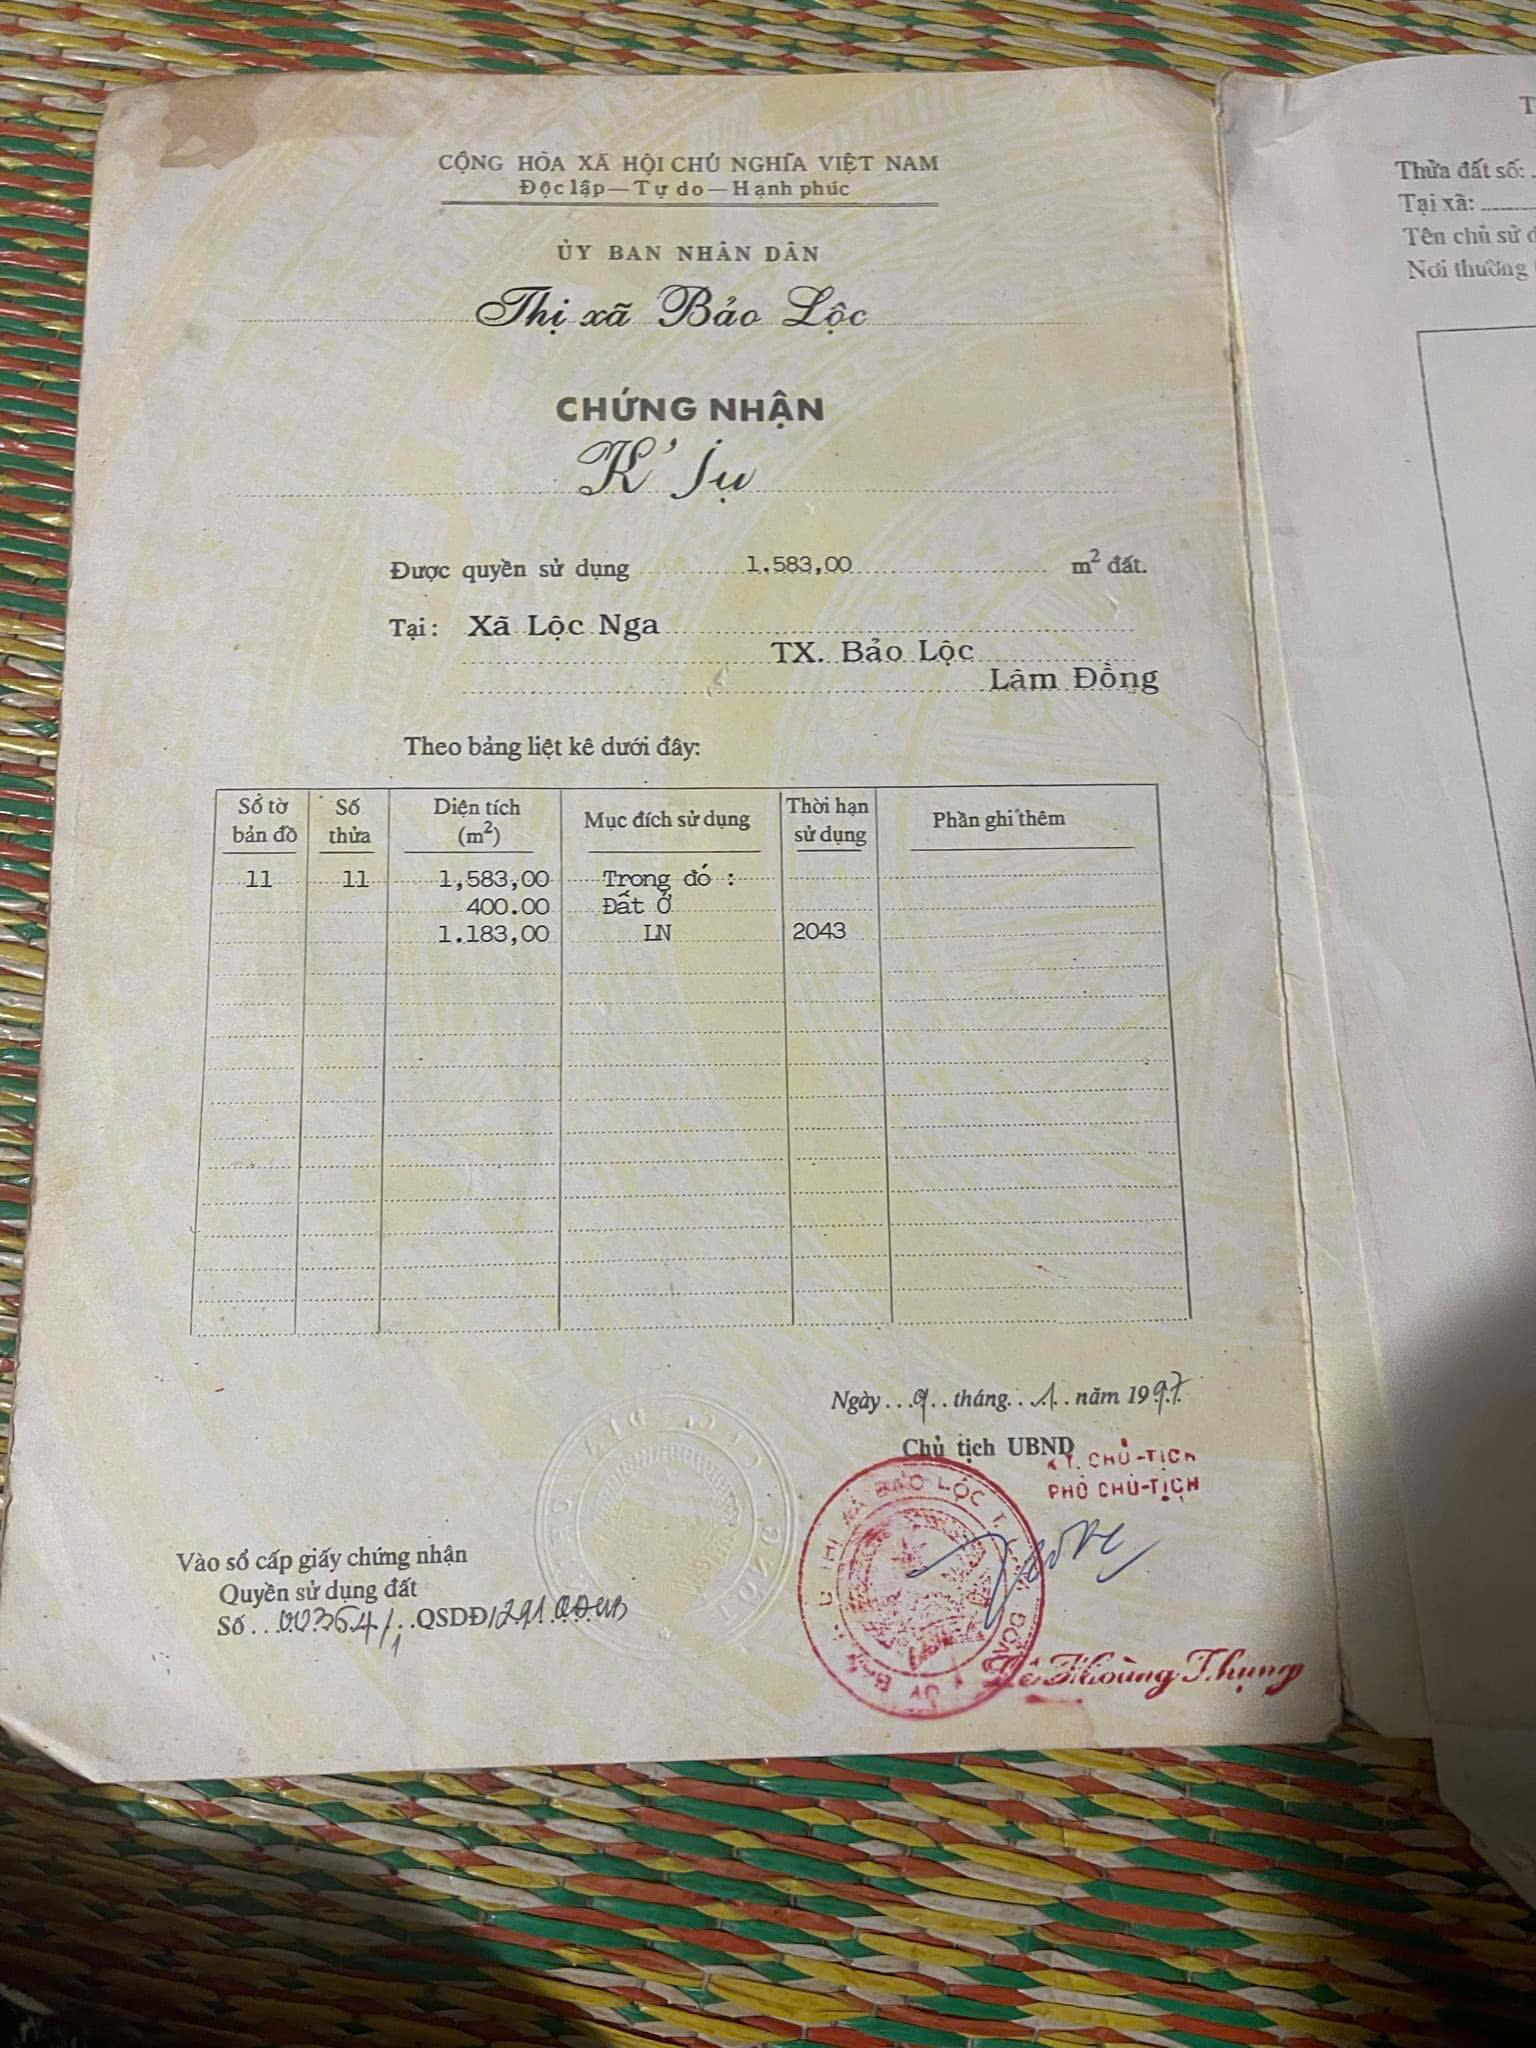 CỘNG HÒA XÃ HỘI CHỦ NGHĨA VIỆT NAM
Độc lập—Tự do—Hạnh phúc
ỦY BAN NHÂN DÂN
Thị xã Bảo Lộc
CHỨNG NHẬN
K' Jụ
Được quyền sử dụng 1.583,00 m² đất.
Tại: Xã Lộc Nga
TX. Bảo Lộc
Lâm Đồng
Theo bảng liệt kê dưới đây:
Số tờ bản đồ Số thửa Diện tích (m²) Mục đích sử dụng Thời hạn sử dụng Phần ghi thêm
11 11 1,583,00 Trong đó :
400.00 Đất Ở
1.183,00 LN 2043
Ngày 9 tháng 1 năm 1997
Chủ tịch UBND
KT. CHỦ-TỊCH
PHÓ CHỦ-TỊCH
Vào sổ cấp giấy chứng nhận
Quyền sử dụng đất
Số 00364/ QSDĐ/
Lê Hoàng Phụng
Thửa đất số:
Tại xã:
Tên chủ sử
Nơi thường